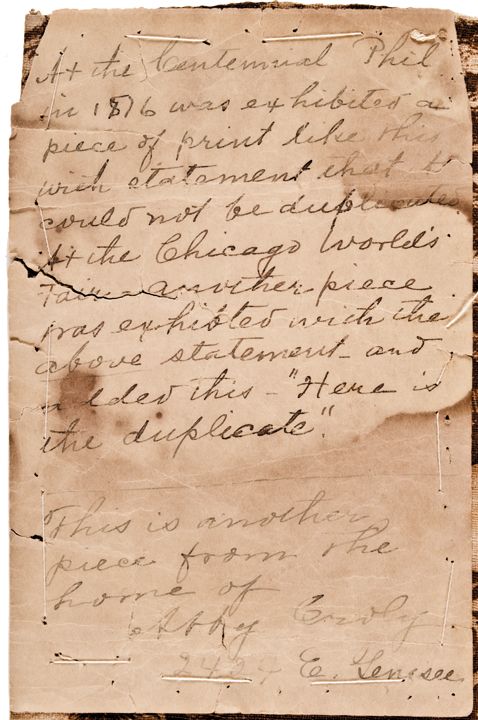 At the Centennial Phil
in 1876 was exhibited a
piece of print like this
with statement that it
could not be duplicated.
At the Chicago World's
Fair - another piece
was exhibted with the
above statement - and
added this - "Here is
the duplicate".
This is another
piece from the
home of
Abby
E. Gensee